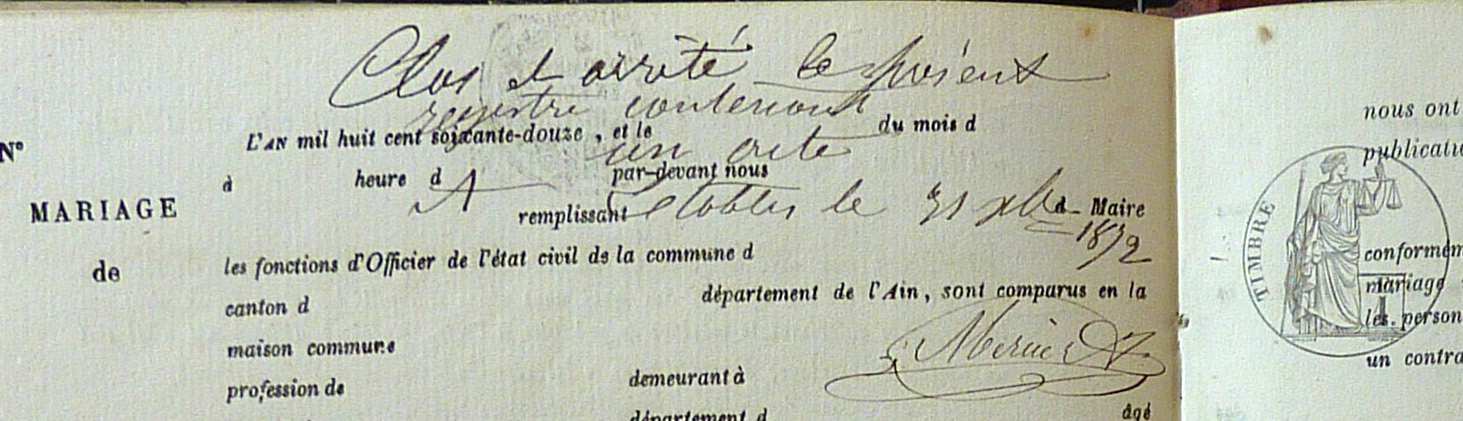 Clos et arrêté le présent
registre contenant
L'AN mil huit cent soixante-douze , et le du mois d
un acte
N°
à heure d par-devant nous
A
MARIAGE
remplissant le 31 d Maire
1872
de
les fonctions d'Officier de l'état civil de la commune d
canton d département de l'Ain, sont comparus en la
maison commune
profession de demeurant à
département d âgé
nous ont
publicatio
TIMBRE
conformém
mariage
les person
un contra